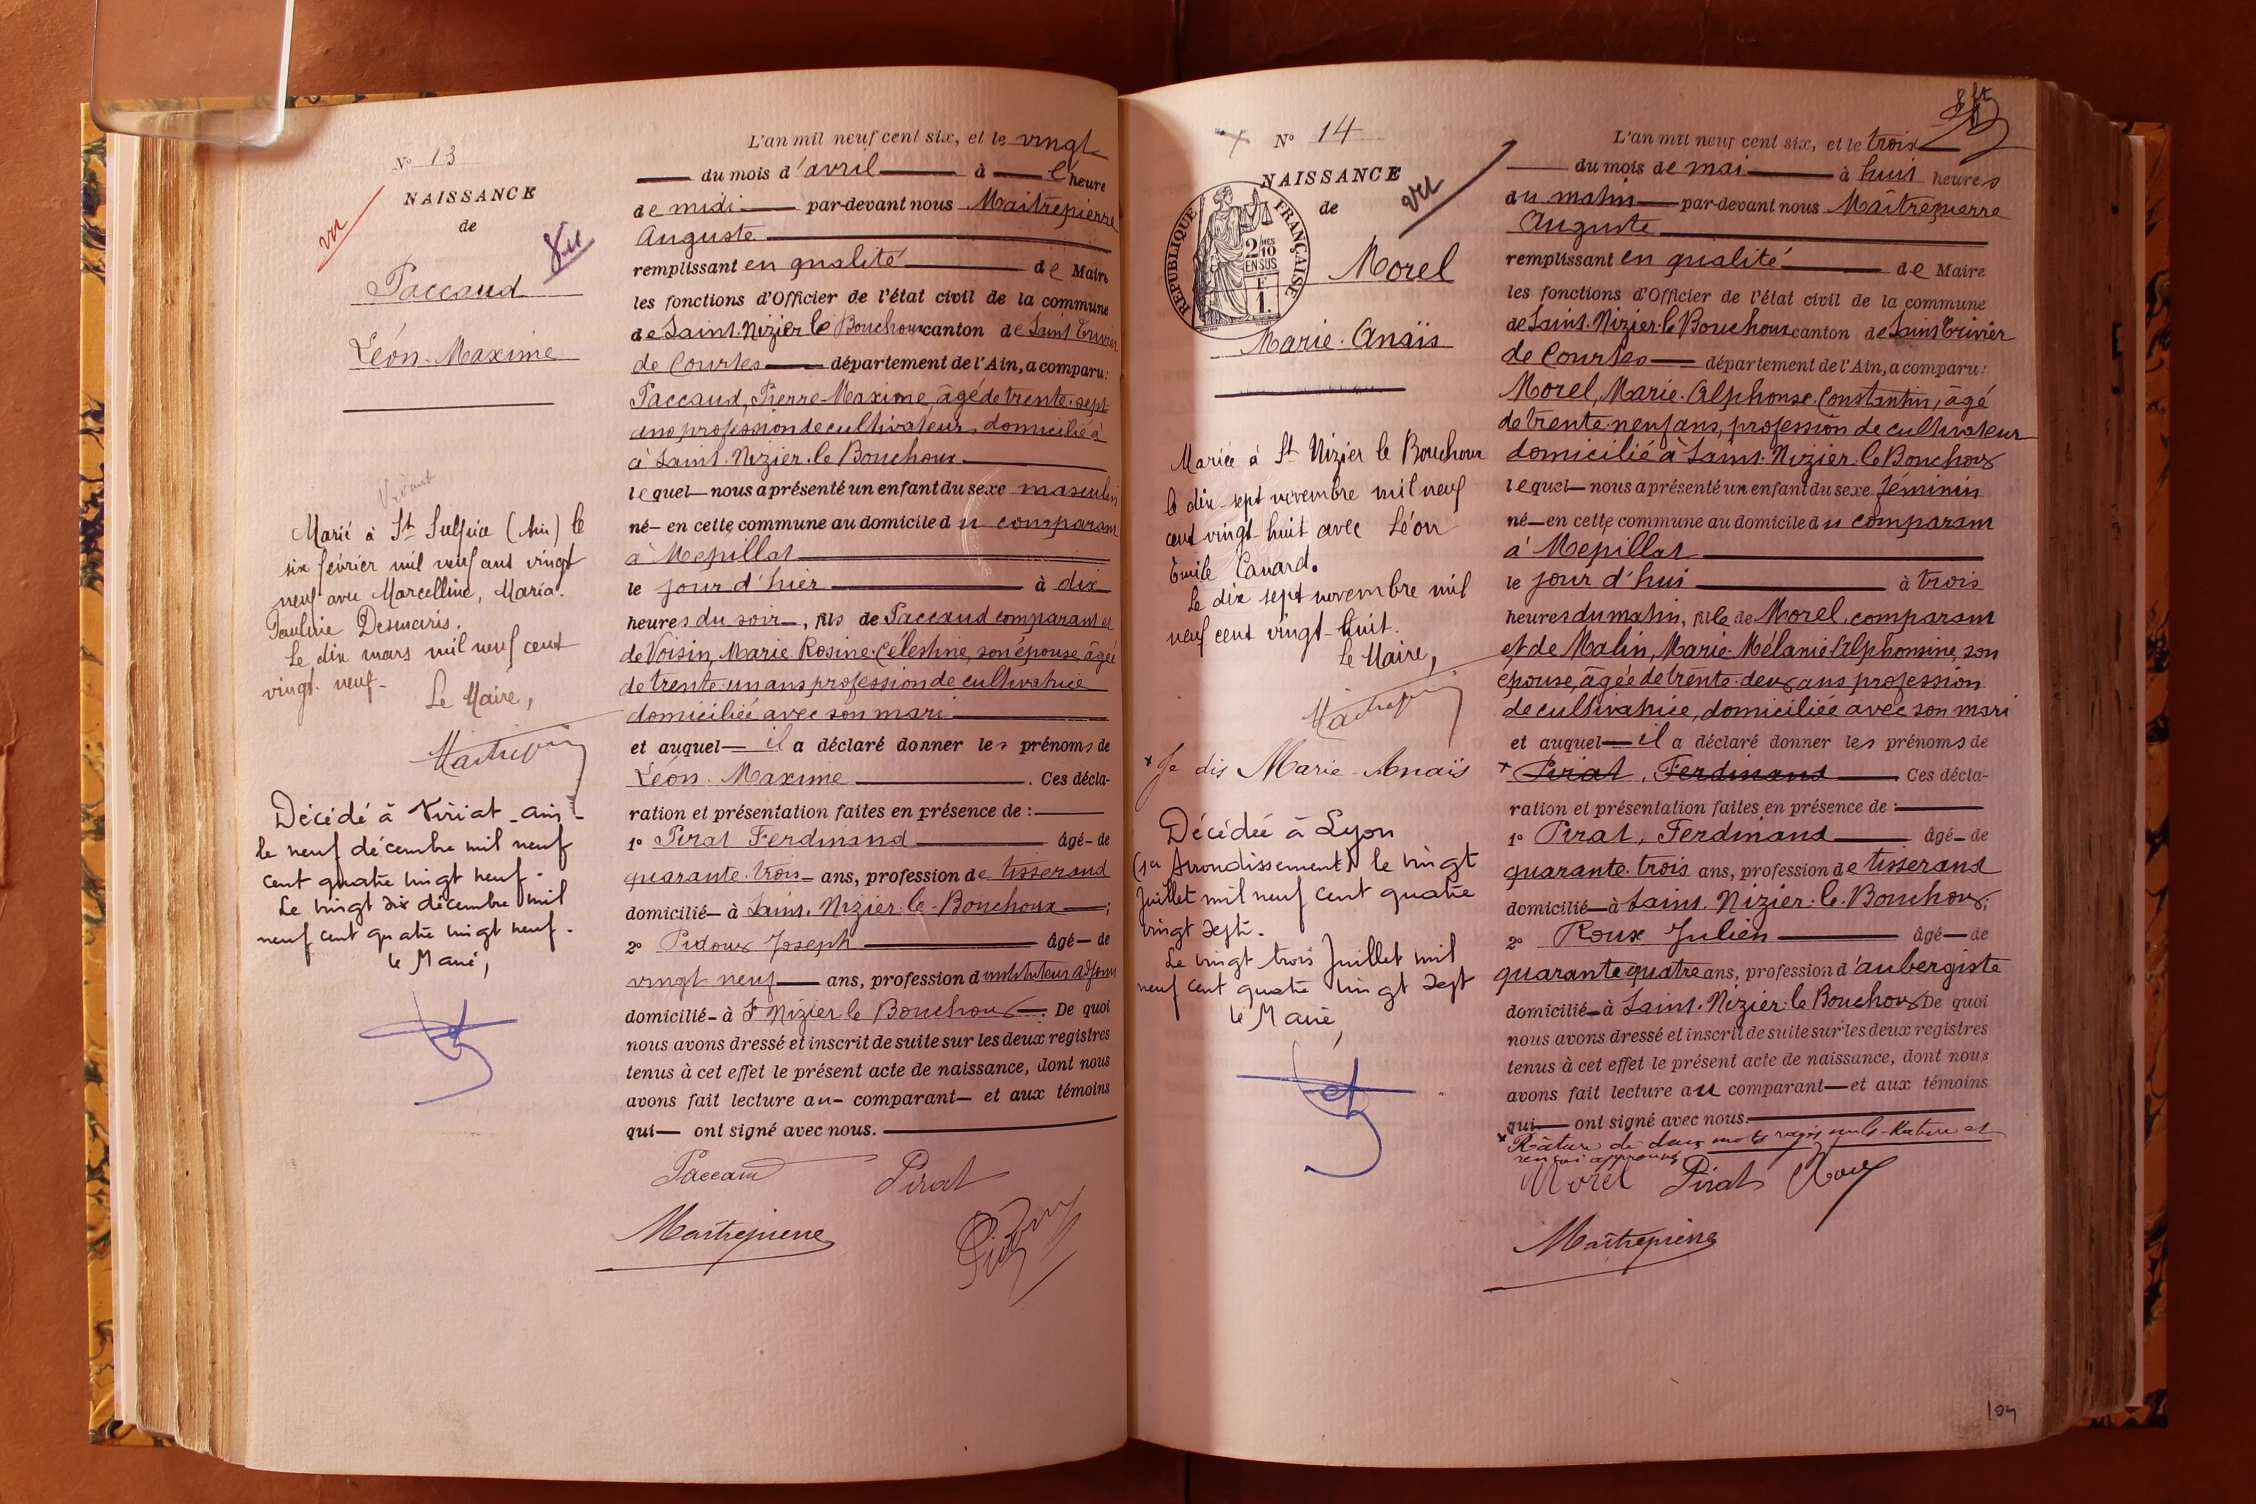 N° 13
NAISSANCE
de
vu
Paccaud
Léon-Maxime
Marié à St Sulpice (Ain) le
six février mil neuf cent vingt
neuf avec Marcelline, Maria.
Pauline Desmaris.
Le dix mars mil neuf cent
vingt-neuf-
Le Maire,
Décédé à Viriat - ain -
le neuf décembre mil neuf
cent quatre vingt neuf.
Le vingt six décembre mil
neuf cent quatre vingt neuf.
le Maire,
L'an mil neuf cent six, et le vingt
du mois d'avril à heure
de midi par-devant nous Maîtrepierre
Auguste
remplissant en qualité de Maire
les fonctions d'Officier de l'état civil de la commune
de Saint-Nizier le Bouchoux canton de Saint Trivier
de Courtes département de l'Ain, a comparu:
Paccaud, Pierre-Maxime, âgé de trente-sept
ans profession de cultivateur, domicilié à
à Saint-Nizier-le Bouchoux
lequel nous a présenté un enfant du sexe masculin
né en cette commune au domicile du comparant
à Mepillat
le jour d'hier à dix
heures du soir, fils de Paccaud comparant et
de Voisin, Marie Rosine-Célestine, son épouse, âgée
de trente-un ans profession de cultivatrice
domiciliée avec son mari
et auquel il a déclaré donner les prénoms de
Léon-Maxime. Ces décla-
ration et présentation faites en présence de :
1° Pirat Ferdinand âgé de
quarante-trois ans, profession de tisserand
domicilié à Saint-Nizier-le-Bouchoux ;
2° Pidoux Joseph âgé de
vingt neuf ans, profession d'instituteur adjoint
domicilié à St Nizier le Bouchoux. De quoi
nous avons dressé et inscrit de suite sur les deux registres
tenus à cet effet le présent acte de naissance, dont nous
avons fait lecture au comparant et aux témoins
qui ont signé avec nous.
Paccaud Pirat
Maitrepierre Pidoux
N° 14
NAISSANCE
de
vu
RÉPUBLIQUE FRANÇAISE
2/10 MES
EN SUS
F
1.
Morel
Marie-Anaïs
Mariée à St Nizier le Bouchoux
le dix-sept novembre mil neuf
cent vingt-huit avec Léon
Emile Canard.
Le dix sept novembre mil
neuf cent vingt-huit.
Le Maire,
x Je dis Marie-Anaïs
Décédée à Lyon
(1er Arrondissement) le vingt
Juillet mil neuf cent quatre
vingt sept.
Le vingt trois Juillet mil
neuf cent quatre vingt sept
le Maire,
L'an mil neuf cent six, et le trois
du mois de mai à huit heures
du matin par-devant nous Maîtrepierre
Auguste
remplissant en qualité de Maire
les fonctions d'Officier de l'état civil de la commune
de Saint-Nizier-le Bouchoux canton de Saint Trivier
de Courtes département de l'Ain, a comparu:
Morel, Marie-Alphonse-Constantin, âgé
de trente-neuf ans, profession de cultivateur
domicilié à Saint-Nizier-le Bouchoux
lequel nous a présenté un enfant du sexe féminin
né en cette commune au domicile du comparant
à Mepillat
le jour d'hui à trois
heures du matin, fille de Morel, comparant
et de Malin, Marie-Mélanie Alphonsine, son
épouse, âgée de trente-deux ans profession
de cultivatrice, domiciliée avec son mari
et auquel il a déclaré donner les prénoms de
x Pirat, Ferdinand Ces décla-
ration et présentation faites en présence de :
1° Pirat, Ferdinand âgé de
quarante-trois ans, profession de tisserand
domicilié à Saint-Nizier-le-Bouchoux;
2° Roux Julien âgé de
quarante quatre ans, profession d'aubergiste
domicilié à Saint-Nizier le Bouchoux De quoi
nous avons dressé et inscrit de suite sur les deux registres
tenus à cet effet le présent acte de naissance, dont nous
avons fait lecture au comparant et aux témoins
qui ont signé avec nous.
x Râture de deux mots rayés nuls-Rature et
renvoi approuvés
Morel Pirat Roux
Maitrepierre